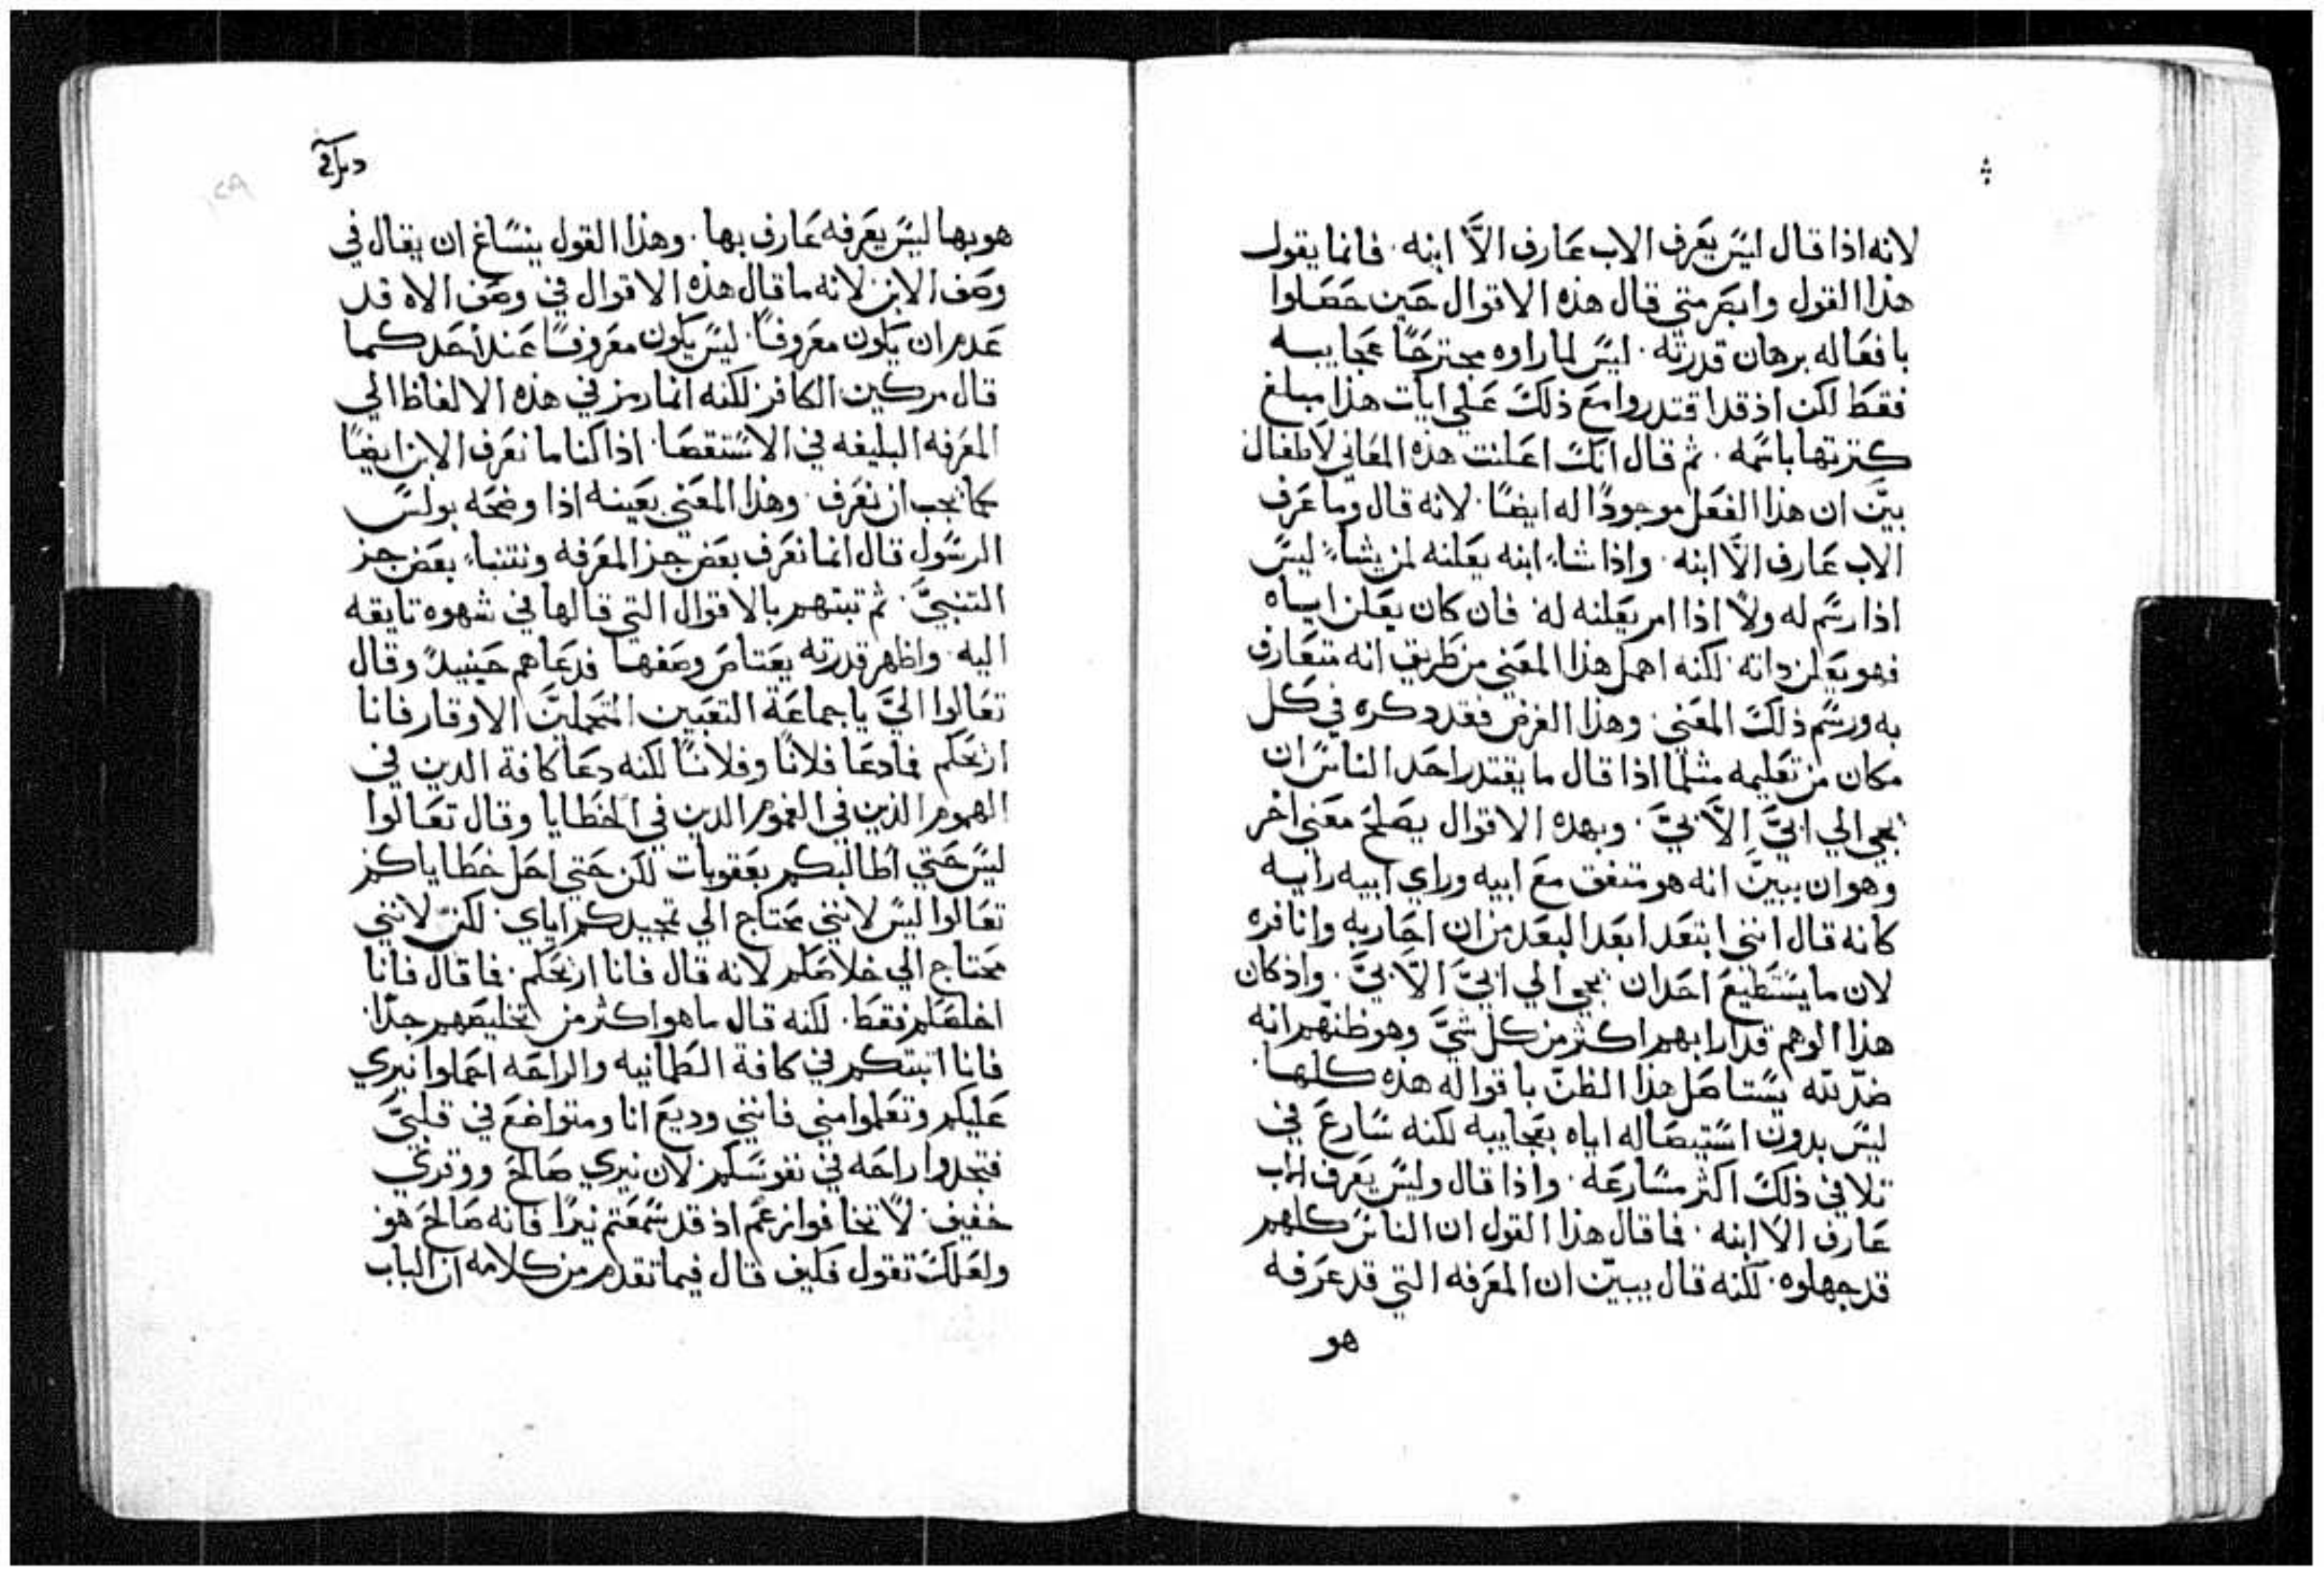 لانه اذا قال ليس يعرف الاب عارف الاَّ ابنه. فانما يقول
هذا القول وابصر متى قال هذه الاقوال حين حصلوا
بافعاله برهان قدرته. ليس لما راوه مجترحًا عجايبه
فقط لكن اذ قد اقتدروا مع ذلك على ايات هذا مبلغ
كثرتها باسمه. ثم قال انك اعلنت هذه المعاني لاطفال
بيَّن ان هذا الفعل موجودًا له ايضًا. لانه قال وما عرف
الاب عارف الاَّ ابنه. واذا شاء ابنه يعلنه لمن يشاء ليس
اذا رسم له ولا اذا امر يعلنه له. فان كان يعلن اياه
فهو يعلن داته. لكنه اهمل هذا المعني من طريق انه متعارف
به ورسم ذلك المعني. وهذا الغرض فقد دكره في كل
مكان من تعليمه مثلما اذا قال ما يقتدر احد الناس ان
يجي الي ابيَّ الاَّ بيَّ. وبهده الاقوال يصلح معني اخر
وهو ان يبيَّن انه هو متفق مع ابيه وراي ابيه رايه
كانه قال انني ابتعد ابعد البعد من ان احاربه وانافره
لان ما يستطيع احد ان يجي الي ابيَّ الاَّ بيَّ. واذ كان
هذا الوهم قد ارابهم اكثر من كل شيَّ وهو ظنهم انه
ضد لله يستاصل هذا الظن باقواله هذه كلها.
ليس بدون استيصاله اياه بعجايبه لكنه سارع في
تلافي ذلك اكثر مسارعه. واذا قال وليس يعرف الاب
عارف الا ابنه. فما قال هذا القول ان الناس كلهم
قد جهلوه. لكنه قال يبيّن ان المعرفه التي قد عرفه
هو
هو بها ليس يعرفه عارف بها. وهذا القول ينساغ ان يقال في
وصف الابن لانه ما قال هذه الاقوال في وصف الاه قد
عدم ان يكون معروفًا. ليس يكون معروفًا عند احد كما
قال مركين الكافر لكنه انما رمز في هذه الالفاظ الي
المعرفه البليغه في الاستقصا. اذا كنا ما نعرف الابن ايضًا
كما يجب ان نعرف. وهذا المعني بعينه اذا وضحه بولس
الرسول قال انما نعرف بعض جز المعرفه ونتنباء بعض جز
التنبيَّ. ثم تبتهم بالاقوال التي قالها في شهوه تايقه
اليه. واظهر قدرته يعتاص وصفها فدعاهم حينيدً وقال
تعالوا اليَّ يا جماعة التعبين المتحملين الاوقار فانا
اريحكم فما دعا فلانًا وفلانًا لكنه دعا كافة الدين في
الهموم الذين في الغموم الدين في الخطايا وقال تعالوا
ليس حتي اطالبكم بعقوبات لكن حتي احل خطاياكم
تعالوا ليس لانني محتاج الي تمجيدكم اياي. لكن لانني
محتاج الي خلاصكم لانه قال فانا اريحكم. فما قال فانا
اخلصكم فقط. لكنه قال ما هو اكثر من تخليصهم جدًا.
فانا اتبتكم في كافة الطمانيه والراحه احملوا نيري
عليكم وتعلموا مني فانني وديع انا ومتواضع في قلبيَّ
فتجدوا راحه في نفوسكم لان نيري صالح ووقري
خفيف. لا تخافوا زعم اذ قد سمعتم نيرًا فانه صالح هو
ولعلك تقول فكيف قال فيما تقدم من كلامه ان الباب